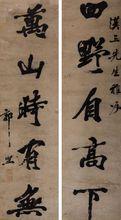 漢三先生雅屬
田野自高下
萬山時有無